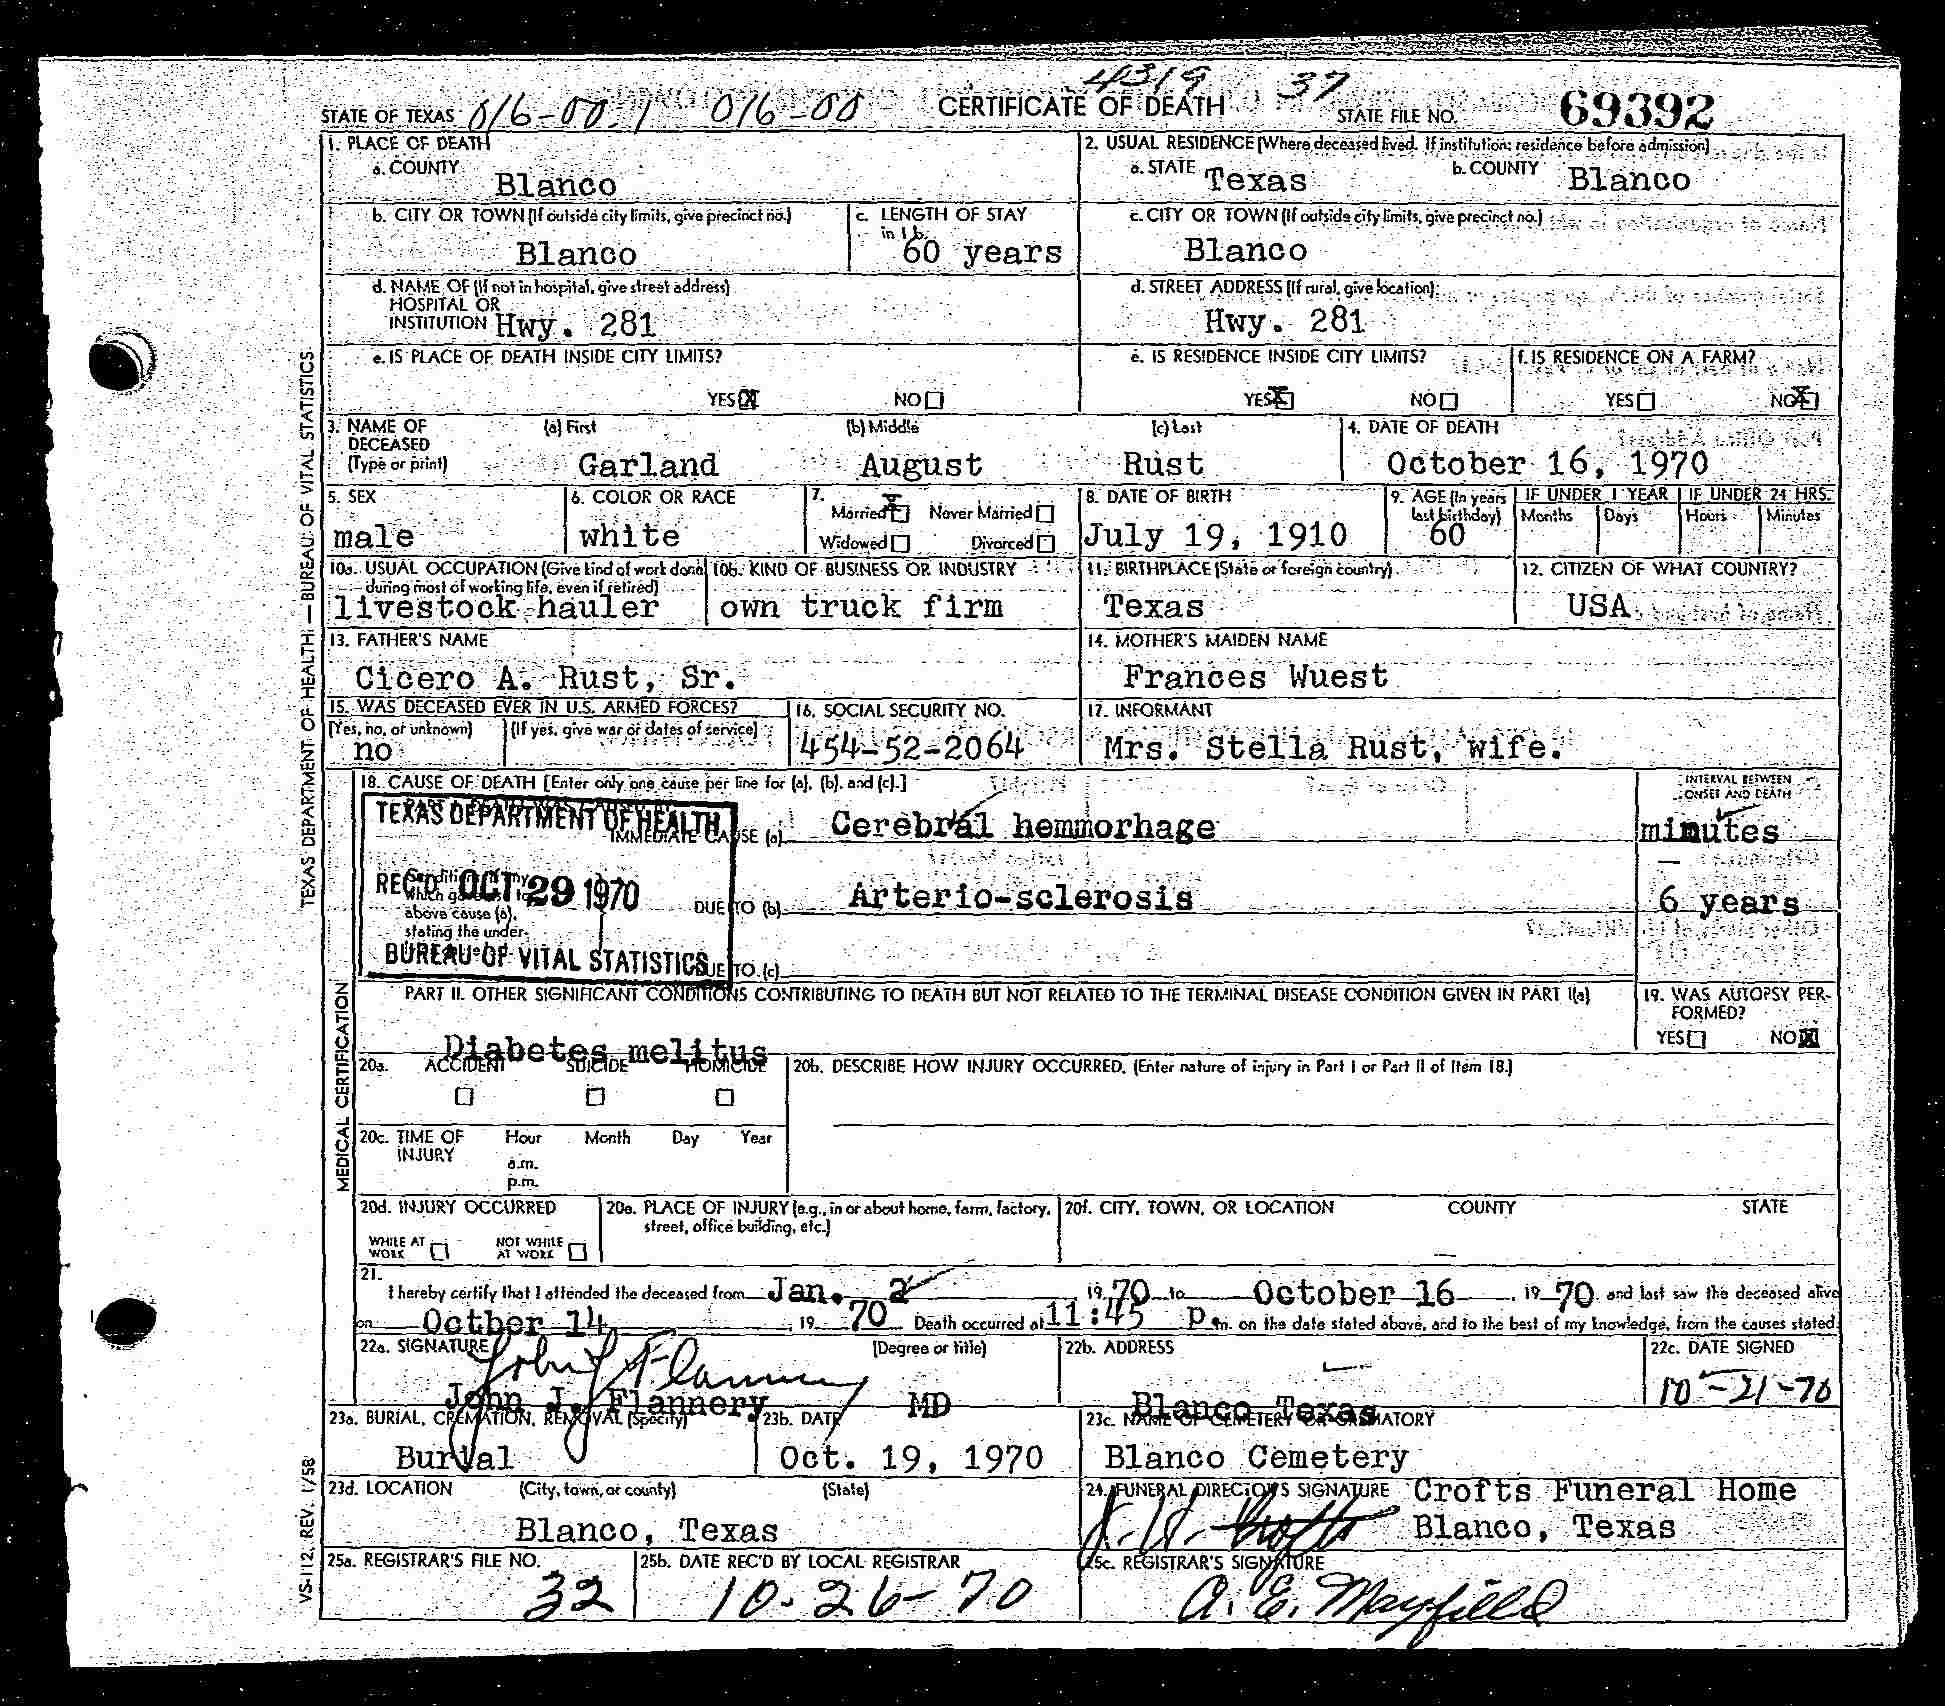 4319 37
STATE OF TEXAS 016-00.1 016-00 CERTIFICATE OF DEATH STATE FILE NO. 69392
1. PLACE OF DEATH
a. COUNTY Blanco
2. USUAL RESIDENCE (Where deceased lived. If institution: residence before admission)
a. STATE Texas b. COUNTY Blanco
b. CITY OR TOWN (If outside city limits, give precinct no.)
Blanco
c. LENGTH OF STAY
in 1 b.
60 years
c. CITY OR TOWN (If outside city limits, give precinct no.)
Blanco
d. NAME OF (If not in hospital, give street address)
HOSPITAL OR
INSTITUTION Hwy. 281
d. STREET ADDRESS (If rural, give location)
Hwy. 281
e. IS PLACE OF DEATH INSIDE CITY LIMITS?
YES X NO
e. IS RESIDENCE INSIDE CITY LIMITS?
YES X NO
f. IS RESIDENCE ON A FARM?
YES NO X
3. NAME OF
DECEASED
(Type or print)
(a) First (b) Middle (c) Last
Garland August Rust
4. DATE OF DEATH
October 16, 1970
5. SEX
male
6. COLOR OR RACE
white
7.
Married X Never Married
Widowed Divorced
8. DATE OF BIRTH
July 19, 1910
9. AGE (In years
last birthday)
60
IF UNDER 1 YEAR
Months Days
IF UNDER 24 HRS.
Hours Minutes
10a. USUAL OCCUPATION (Give kind of work done
during most of working life, even if retired)
livestock hauler
10b. KIND OF BUSINESS OR INDUSTRY
own truck firm
11. BIRTHPLACE (State or foreign country)
Texas
12. CITIZEN OF WHAT COUNTRY?
USA
13. FATHER'S NAME
Cicero A. Rust, Sr.
14. MOTHER'S MAIDEN NAME
Frances Wuest
15. WAS DECEASED EVER IN U.S. ARMED FORCES?
(Yes, no, or unknown) (If yes, give war or dates of service)
no
16. SOCIAL SECURITY NO.
454-52-2064
17. INFORMANT
Mrs. Stella Rust, wife.
18. CAUSE OF DEATH [Enter only one cause per line for (a), (b), and (c).]
INTERVAL BETWEEN
ONSET AND DEATH
PART I. DEATH WAS CAUSED BY:
TEXAS DEPARTMENT OF HEALTH
IMMEDIATE CAUSE (a) Cerebral hemmorhage minutes
REC'D OCT 29 1970
Conditions, if any,
which gave rise to
above cause (a),
stating the under-
DUE TO (b) Arterio-sclerosis 6 years
BUREAU OF VITAL STATISTICS
DUE TO (c)
PART II. OTHER SIGNIFICANT CONDITIONS CONTRIBUTING TO DEATH BUT NOT RELATED TO THE TERMINAL DISEASE CONDITION GIVEN IN PART I(a)
Diabetes melitus
19. WAS AUTOPSY PER-
FORMED?
YES NO X
20a. ACCIDENT SUICIDE HOMICIDE
20b. DESCRIBE HOW INJURY OCCURRED. (Enter nature of injury in Part I or Part II of Item 18.)
20c. TIME OF
INJURY
Hour Month Day Year
a.m.
p.m.
20d. INJURY OCCURRED
WHILE AT
WORK
NOT WHILE
AT WORK
20e. PLACE OF INJURY (e.g., in or about home, farm, factory,
street, office building, etc.)
20f. CITY, TOWN, OR LOCATION COUNTY STATE
21.
I hereby certify that I attended the deceased from Jan. 2 1970 to October 16, 1970 and last saw the deceased alive
on Octber 14, 1970 Death occurred at 11:45 p.m. on the date stated above, and to the best of my knowledge, from the causes stated.
22a. SIGNATURE (Degree or title)
John J Flannery
John J. Flannery MD
22b. ADDRESS
Blanco Texas
22c. DATE SIGNED
10-21-70
23a. BURIAL, CREMATION, REMOVAL (Specify)
Burial
23b. DATE
Oct. 19, 1970
23c. NAME OF CEMETERY OR CREMATORY
Blanco Cemetery
23d. LOCATION (City, town, or county) (State)
Blanco, Texas
24. FUNERAL DIRECTOR'S SIGNATURE Crofts Funeral Home
Blanco, Texas
25a. REGISTRAR'S FILE NO.
32
25b. DATE REC'D BY LOCAL REGISTRAR
10-26-70
25c. REGISTRAR'S SIGNATURE
A. E. Mayfield
TEXAS DEPARTMENT OF HEALTH — BUREAU OF VITAL STATISTICS
MEDICAL CERTIFICATION
VS-112, REV. 1/58